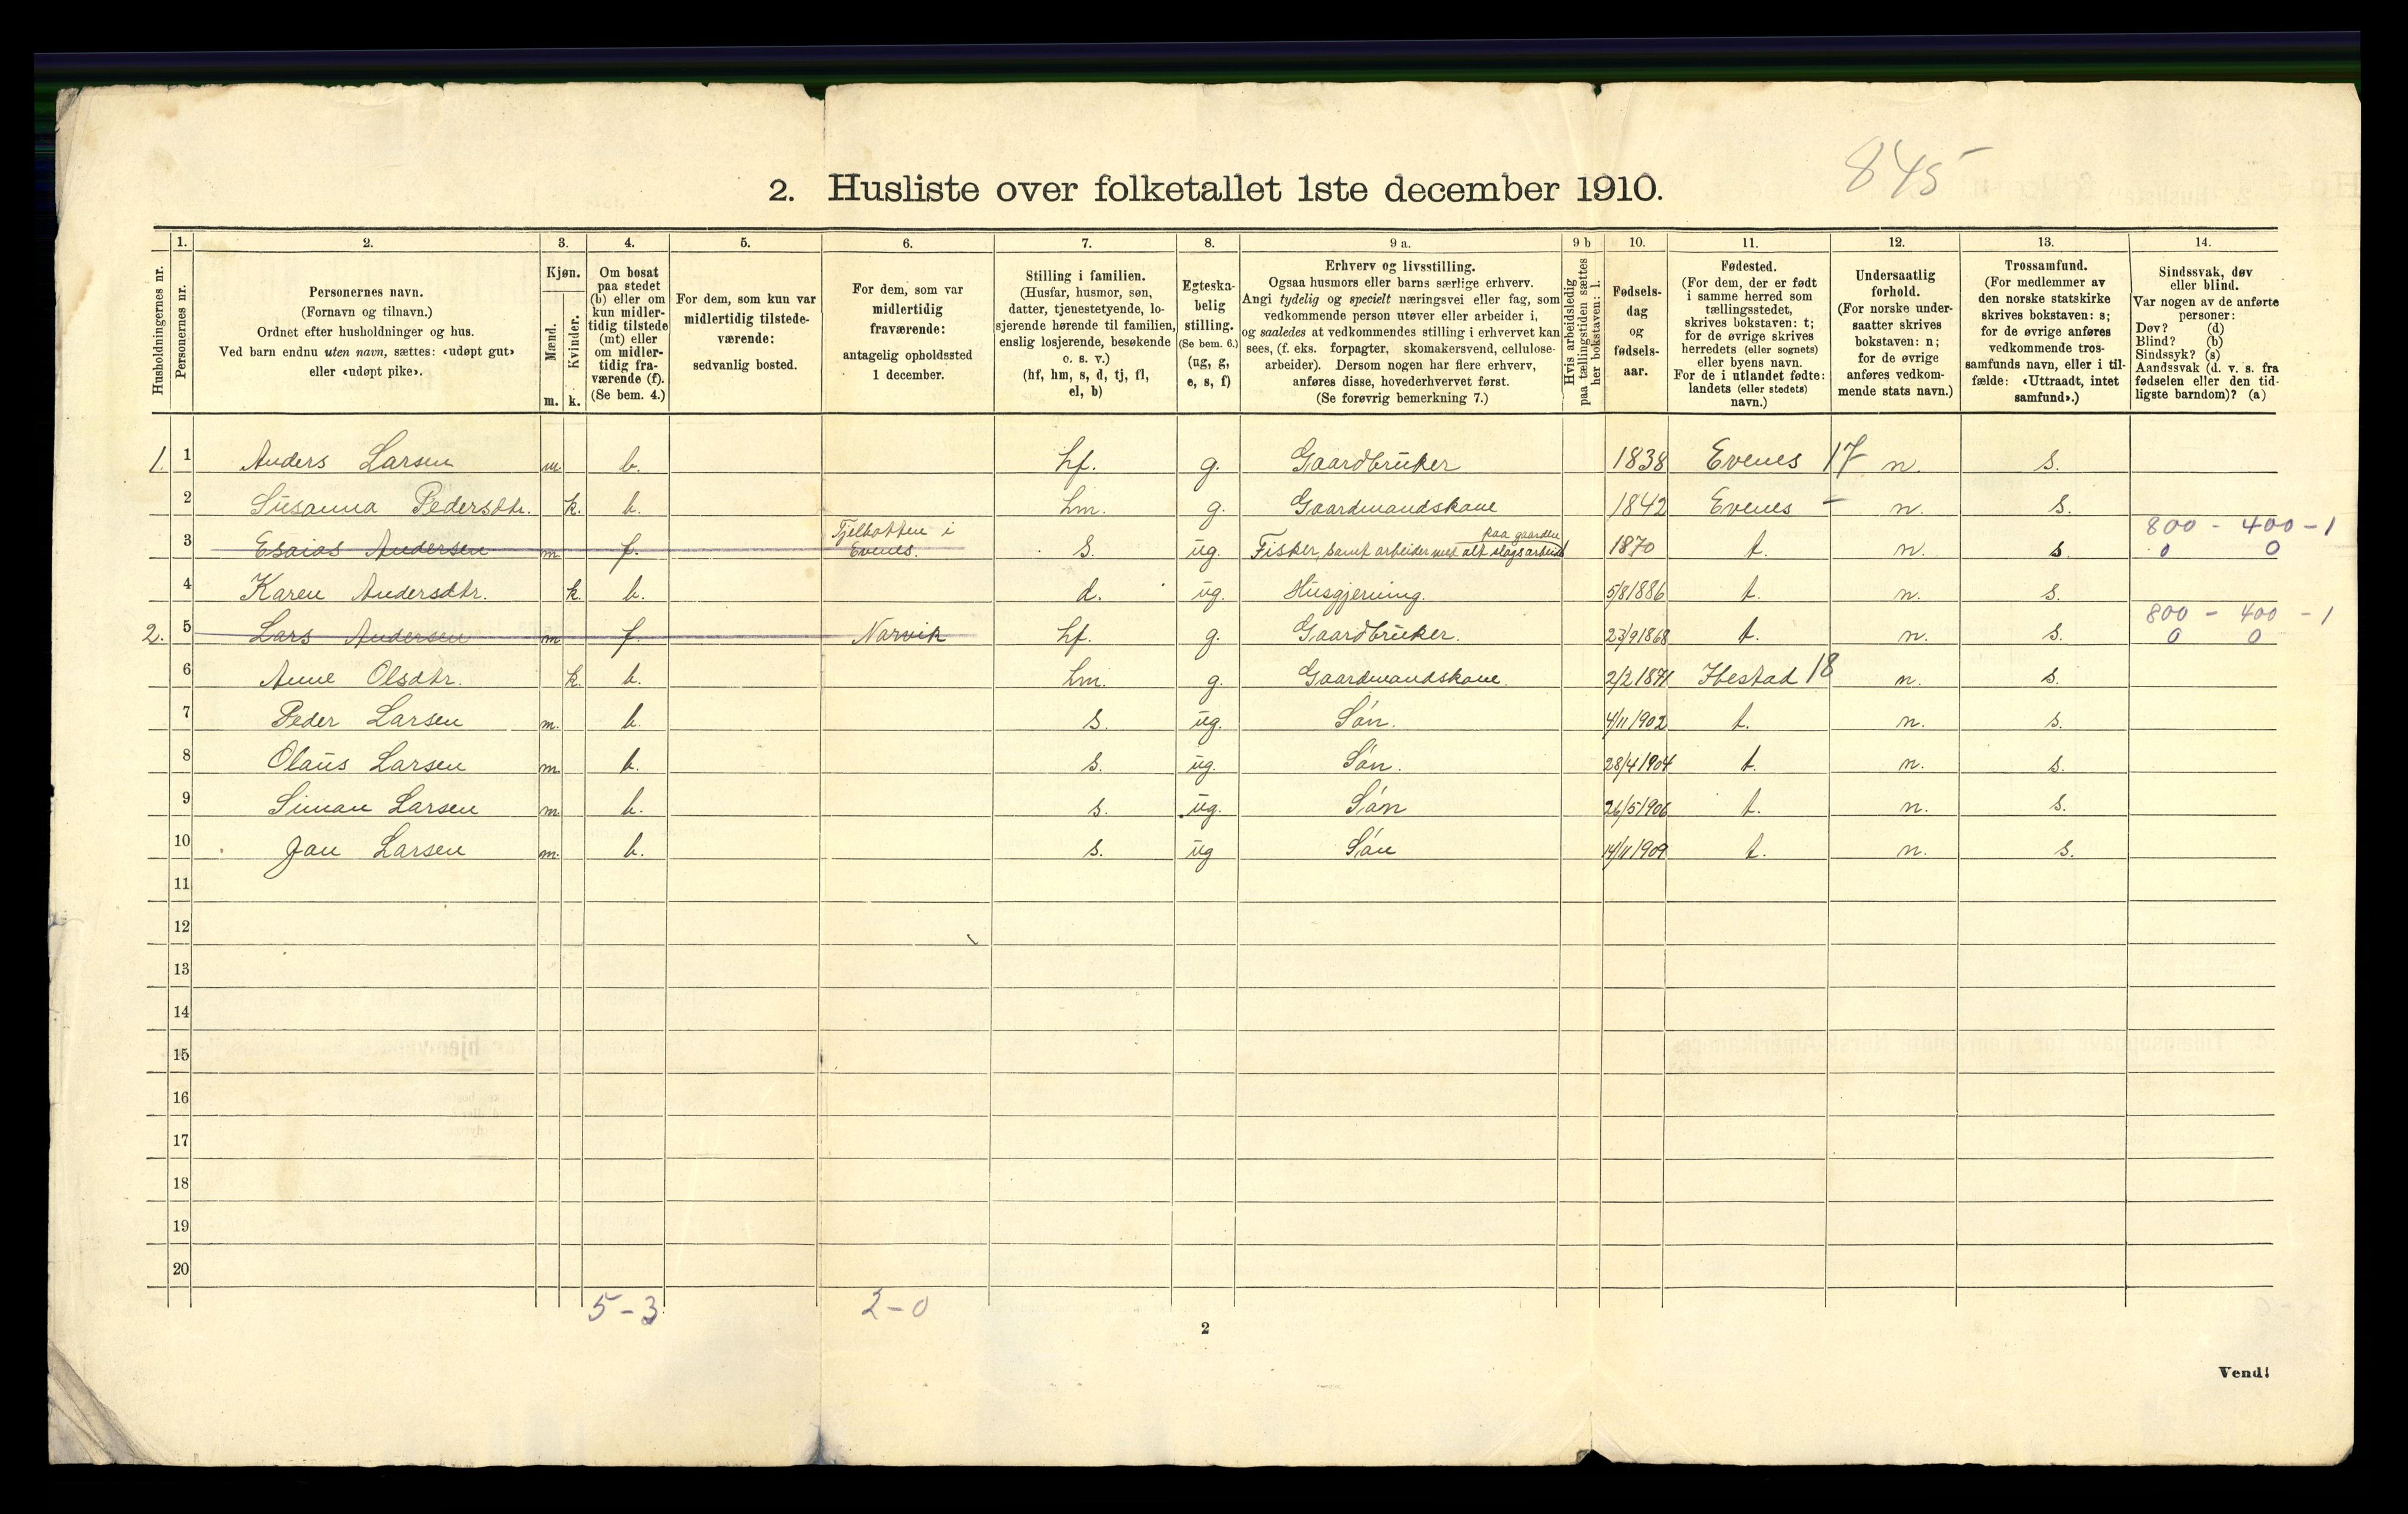 845
2. Husliste over folketallet 1ste december 1910.
Husholdningernes nr.
1.
Personernes nr.
2.
Personernes navn.
(Fornavn og tilnavn.)
Ordnet efter husholdninger og hus.
Ved barn endnu uten navn, sættes: «udøpt gut»
eller «udøpt pike».
3.
Kjøn.
Mænd.
Kvinder.
m. k.
4.
Om bosat
paa stedet
(b) eller om
kun midler-
tidig tilstede
(mt) eller
om midler-
tidig fra-
værende (f).
(Se bem. 4.)
5.
For dem, som kun var
midlertidig tilstede-
værende:
sedvanlig bosted.
6.
For dem, som var
midlertidig
fraværende:
antagelig opholdssted
1 december.
7.
Stilling i familien.
(Husfar, husmor, søn,
datter, tjenestetyende, lo-
sjerende hørende til familien,
enslig losjerende, besøkende
o. s. v.)
(hf, hm, s, d, tj, fl,
el, b)
8.
Egteska-
belig
stilling.
(Se bem. 6.)
(ug, g,
e, s, f)
9 a.
Erhverv og livsstilling.
Ogsaa husmors eller barns særlige erhverv.
Angi tydelig og specielt næringsvei eller fag, som
vedkommende person utøver eller arbeider i,
og saaledes at vedkommendes stilling i erhvervet kan
sees, (f. eks. forpagter, skomakersvend, cellulose-
arbeider). Dersom nogen har flere erhverv,
anføres disse, hovederhvervet først.
(Se forøvrig bemerkning 7.)
9 b
Hvis arbeidsledig
paa tællingstiden sættes
her bokstaven: l.
10.
Fødsels-
dag
og
fødsels-
aar.
11.
Fødested.
(For dem, der er født
i samme herred som
tællingsstedet,
skrives bokstaven: t;
for de øvrige skrives
herredets (eller sognets)
eller byens navn.
For de i utlandet fødte:
landets (eller stedets)
navn.)
12.
Undersaatlig
forhold.
(For norske under-
saatter skrives
bokstaven: n;
for de øvrige
anføres vedkom-
mende stats navn.)
13.
Trossamfund.
(For medlemmer av
den norske statskirke
skrives bokstaven: s;
for de øvrige anføres
vedkommende tros-
samfunds navn, eller i til-
fælde: «Uttraadt, intet
samfund».)
14.
Sindssvak, døv
eller blind.
Var nogen av de anførte
personer:
Døv? (d)
Blind? (b)
Sindssyk? (s)
Aandssvak (d. v. s. fra
fødselen eller den tid-
ligste barndom)? (a)
1. 1 Anders Larsen m. b. hf. g. Gaardbruker 1838 Evenes 17 n. s.
2 Susanna Pedersdtr. k. b. hm. g. Gaardmandskone 1842 Evenes - n. s.
3 Esaias Andersen m f. Tjelbotten i Evenes. s. ug. Fisker, samt arbeider med alt slags arbeid paa gaarden 1870 t. n. s. 800 - 400 - 1
0 0
4 Karen Andersdtr. k. b. d. ug. Husgjerning. 5/8 1886 t. n. s.
2. 5 Lars Andersen m f. Narvik hf. g. Gaardbruker. 23/9 1868 t. n. s. 800 - 400 - 1
0 0
6 Anne Olsdtr. k. b. hm. g. Gaardmandskone. 2/2 1871 Ibestad 18 n. s.
7 Peder Larsen m. b. s. ug. Søn. 4/11 1902 t. n. s.
8 Olaus Larsen m. b. s. ug. Søn. 28/4 1904 t. n. s.
9 Simon Larsen m. b. s. ug. Søn 26/5 1906 t. n. s.
10 Jon Larsen m. b. s. ug Søn 14/11 1909 t. n. s.
11
12
13
14
15
16
17
18
19
20
5 - 3 2 - 0
2
Vend!